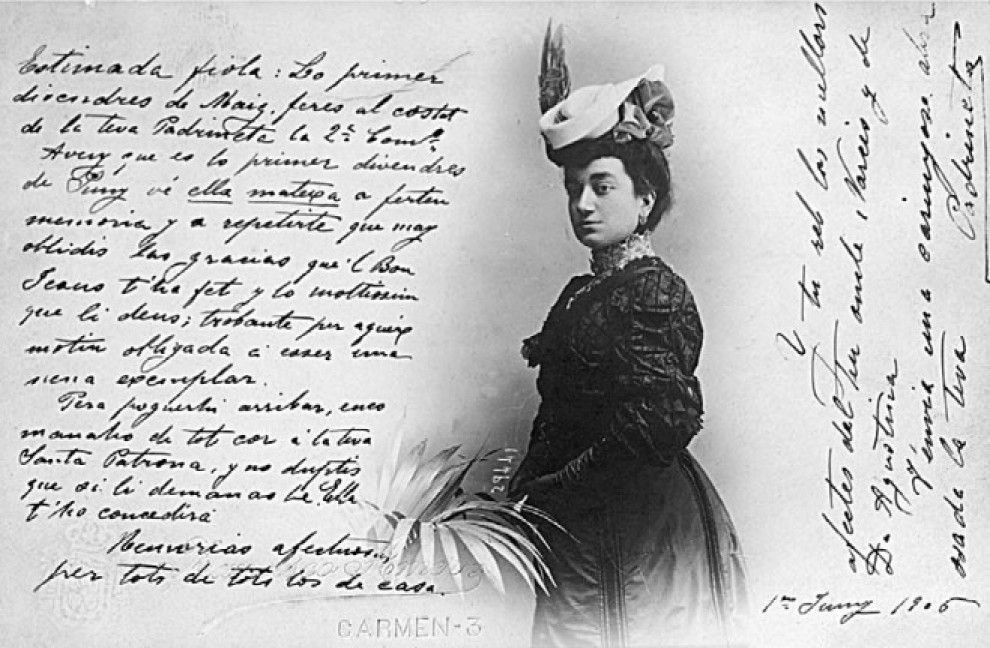 Estimada fiola: Lo primer
divendres de Maig, feres al costat
de la teva Padrineta la 2ª Comº.
Avuy que es lo primer divendres
de Juny vé ella mateixa a ferten
memoria y a repetirte que may
oblidis las gracias que'l Bon
Jesus t'ha fet y lo moltissim
que li deus; trobante per aqueix
motiu obligada á esser una
nena exemplar.
Pera poguerhi arribar, enco
manaho de tot cor á la teva
Santa Patrona, y no duptis
que si li demanas be Ella
t'ho concedirá
Memorias afectuosas
per tots de tots los de casa.
CARMEN-3
Y tu reb los mellors
afectes del teu oncle Narcis y de
Da. Agustina
Y envia una carinyosa
la teva
Padrineta
1er Juny 1906